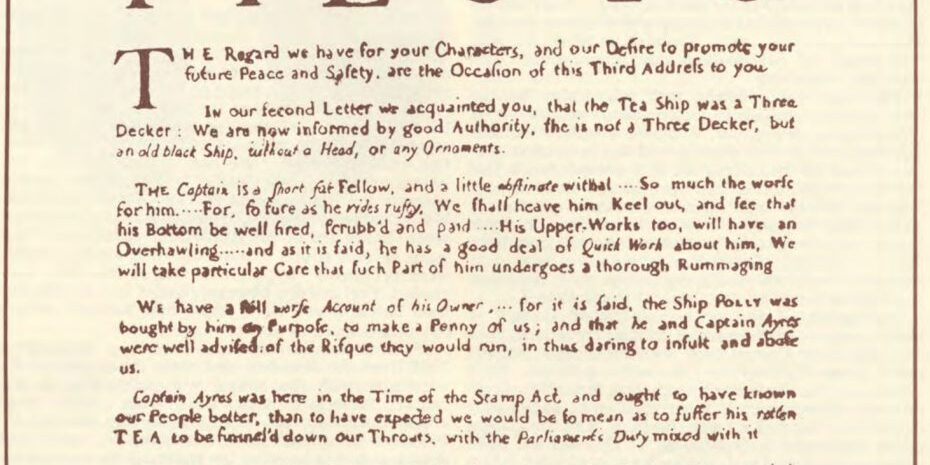 THE Regard we have for your Characters, and our Desire to promote your
future Peace and Safety, are the Occasion of this Third Address to you
IN our second Letter we acquainted you, that the Tea Ship was a Three
Decker: We are now informed by good Authority, she is not a Three Decker, but
an old black Ship, without a Head, or any Ornaments.
THE Captain is a short fat Fellow, and a little obstinate withal ....So much the worse
for him.....For, so sure as he rides rusty, We shall heave him Keel out, and see that
his Bottom be well fired, scrubb'd and paid ....His Upper-Works too, will have an
Overhawling.....and as it is said, he has a good deal of Quick Work about him, We
will take particular Care that such Part of him undergoes a thorough Rummaging
WE have a still worse Account of his Owner,....for it is said, the Ship POLLY was
bought by him on Purpose, to make a Penny of us; and that he and Captain Ayres
were well advised of the Risque they would run, in thus daring to insult and abuse
us.
Captain Ayres was here in the Time of the Stamp Act, and ought to have known
our People better, than to have expected we would be so mean as to suffer his rotten
TEA to be funnel'd down our Throats, with the Parliament's Duty mixed with it